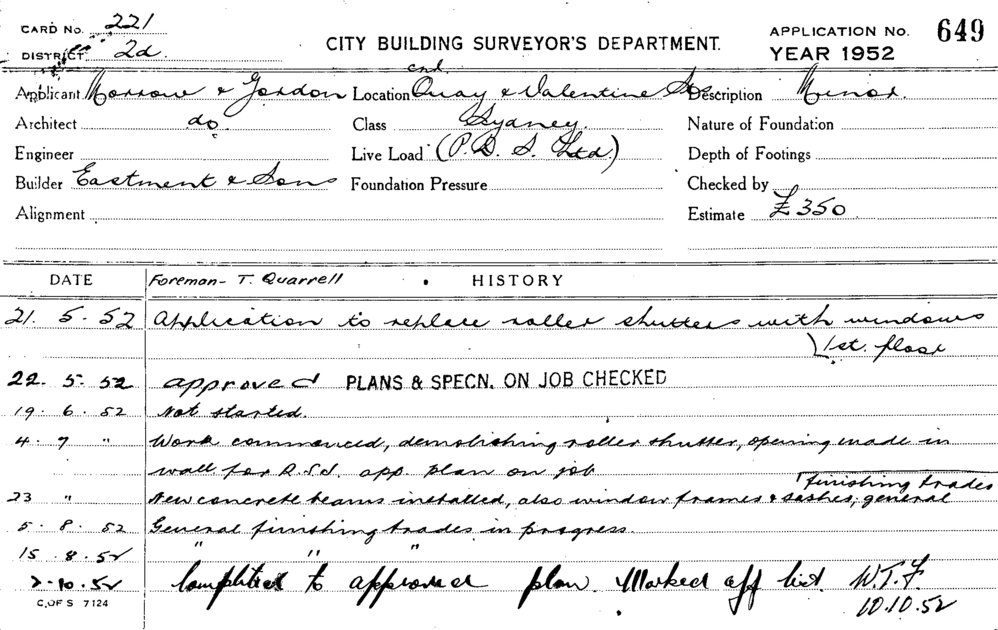 CARD No. 221
DISTRICT 2d.
CITY BUILDING SURVEYOR'S DEPARTMENT.
APPLICATION No. 649
YEAR 1952
Applicant Morrow & Gordon Location Cnr. Quay & Valentine Sts Description Minor.
Architect do. Class Sydney. Nature of Foundation
Engineer Live Load (P.D.S. Ltd.) Depth of Footings
Builder Eastment & Sons Foundation Pressure Checked by
Alignment Estimate £350
DATE Foreman - T. Quarrell HISTORY
21. 5. 52 Application to replace roller shutters with windows
1st. floor
22. 5. 52 approved PLANS & SPECN. ON JOB CHECKED
19. 6. 52 Not started.
4. 7 " Work commenced, demolishing roller shutter, opening made in
wall for R.S.J. app. plan on job
finishing trades
23 " New concrete beams installed, also window frames & sashes, general
5. 8. 52 General finishing trades in progress.
15. 8. 52 " " "
2. 10. 52 Completed to approved plan. Marked off list W.T.F.
C. OF S 7124 10.10.52